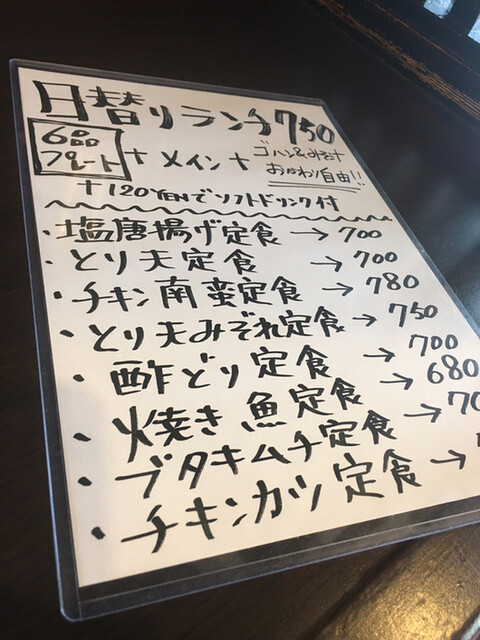 日替りランチ750
6品プレート + メイン + ゴハン&みそ汁おかわり自由!!
+120YENでソフトドリンク付
・塩唐揚げ定食 → 700
・とり天定食 → 700
・チキン南蛮定食 → 780
・とり天みぞれ定食 → 750
・酢どり定食 → 700
・焼き魚定食 → 680
・ブタキムチ定食 → 70
・チキンカツ定食 →